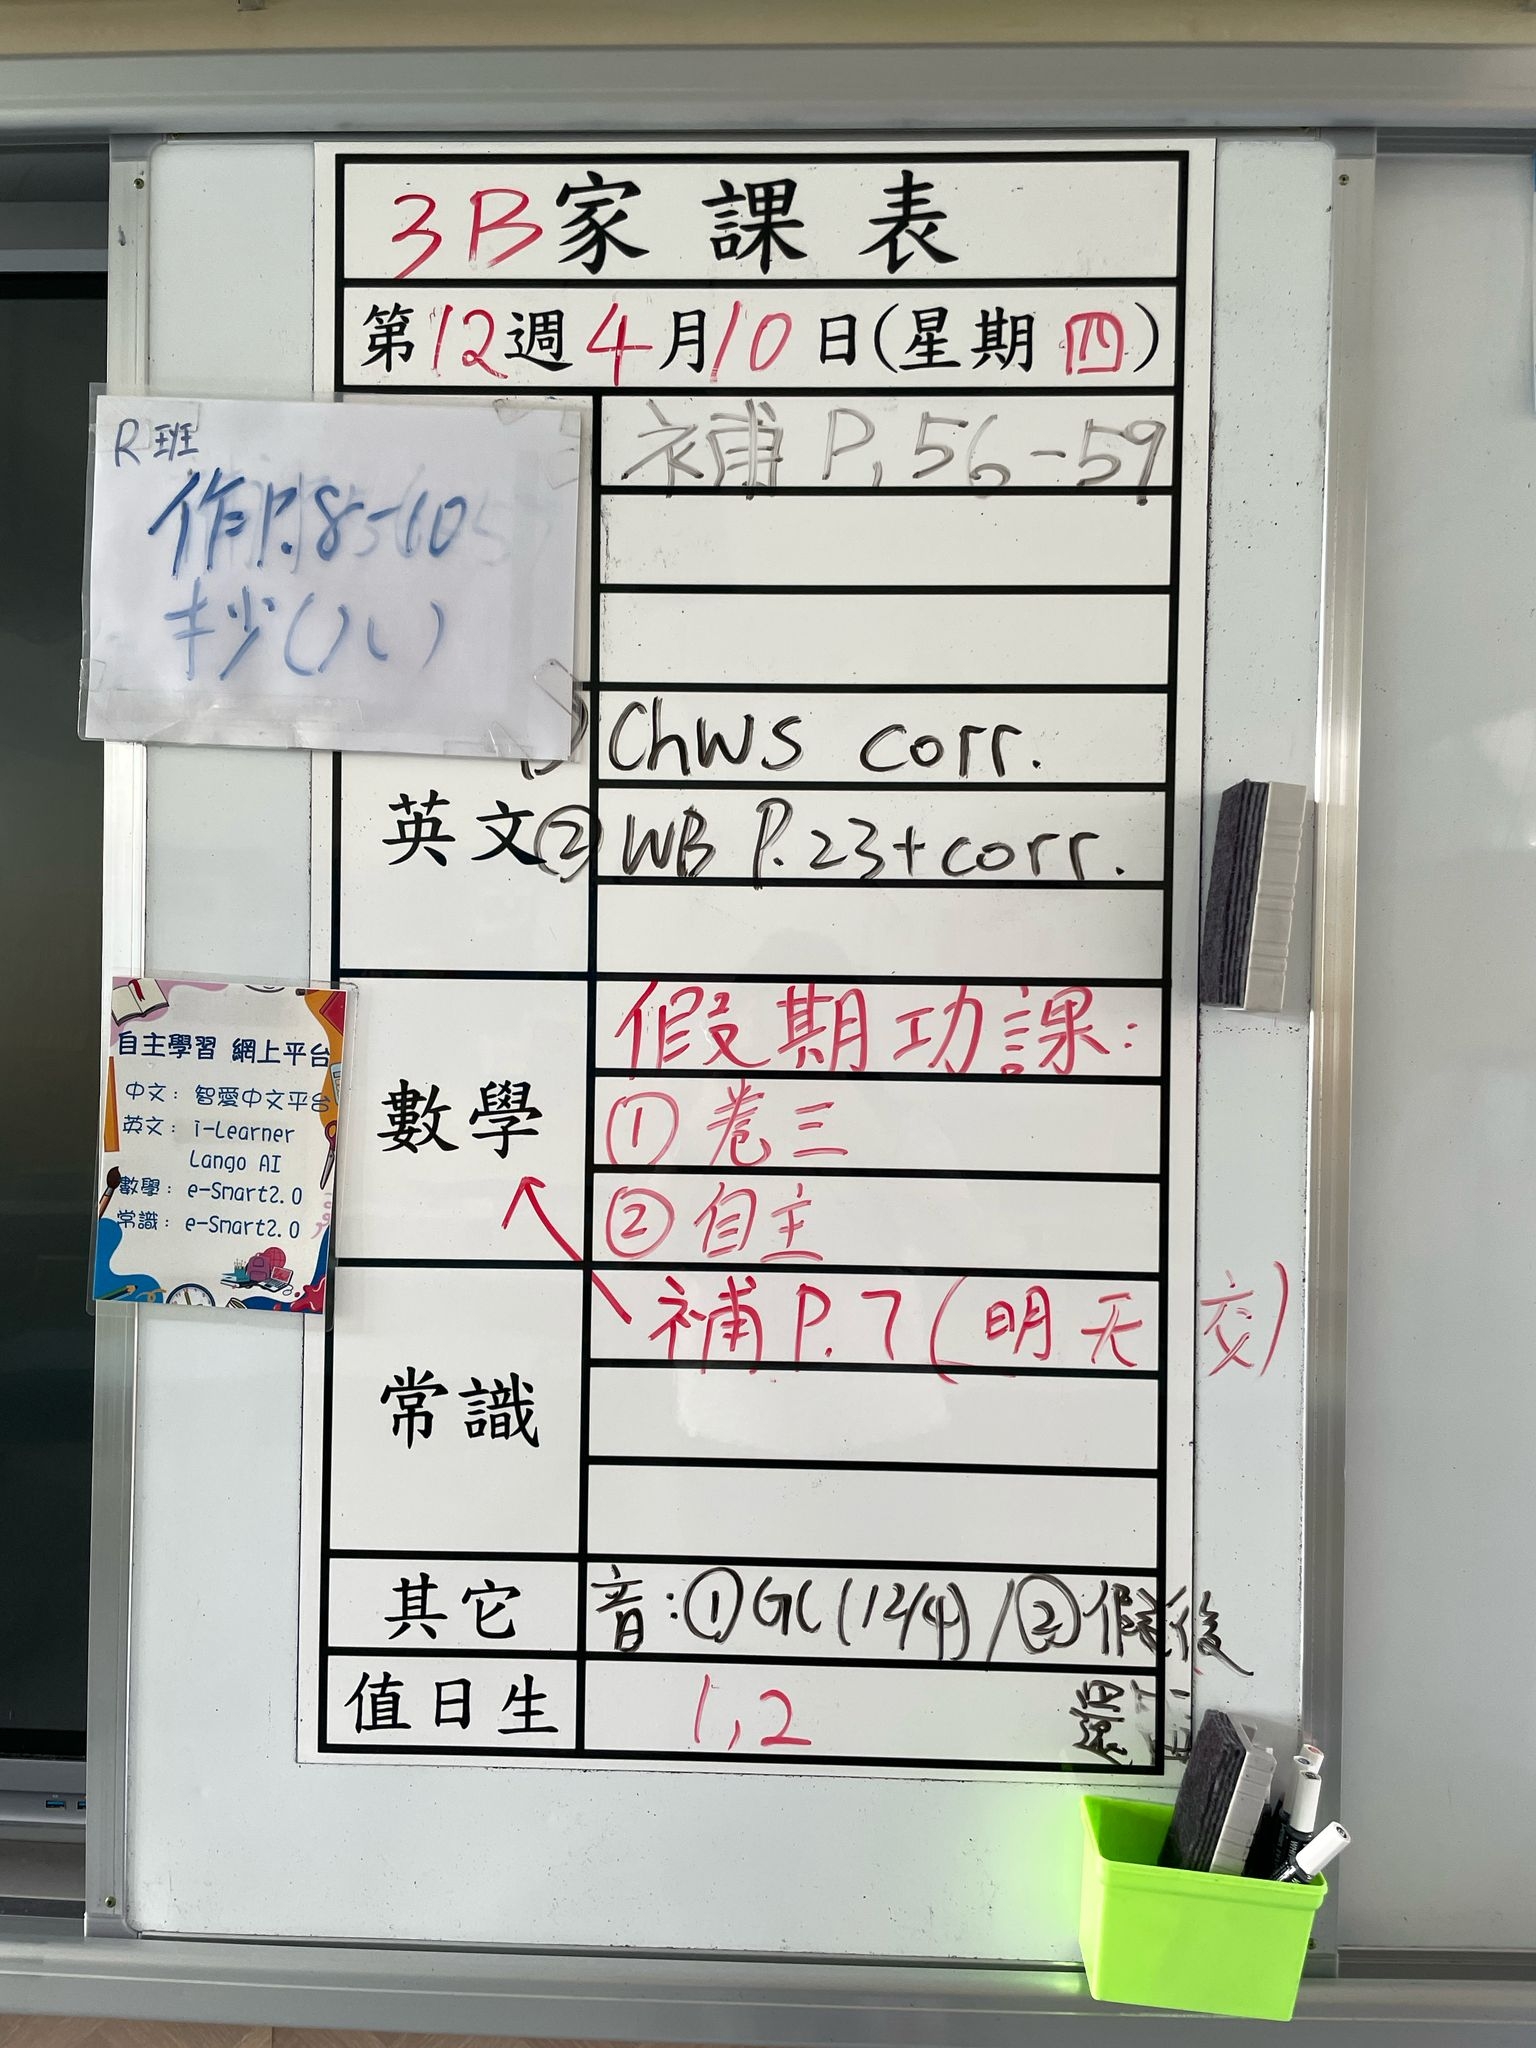 3B家課表
第12週4月10日(星期四)
補 P.56-59
R班
作P.8-10
抄(八)
ChWS corr.
英文
② WB P.23+corr.
數學
假期功課:
① 卷三
② 自主
常識
補P.7(明天交)
其它
音:①GC(12/4)/②假後
值日生
1,2
自主學習 網上平台
中文: 智愛中文平台
英文: i-Learner
Lango AI
數學: e-Smart2.0
常識: e-Smart2.0